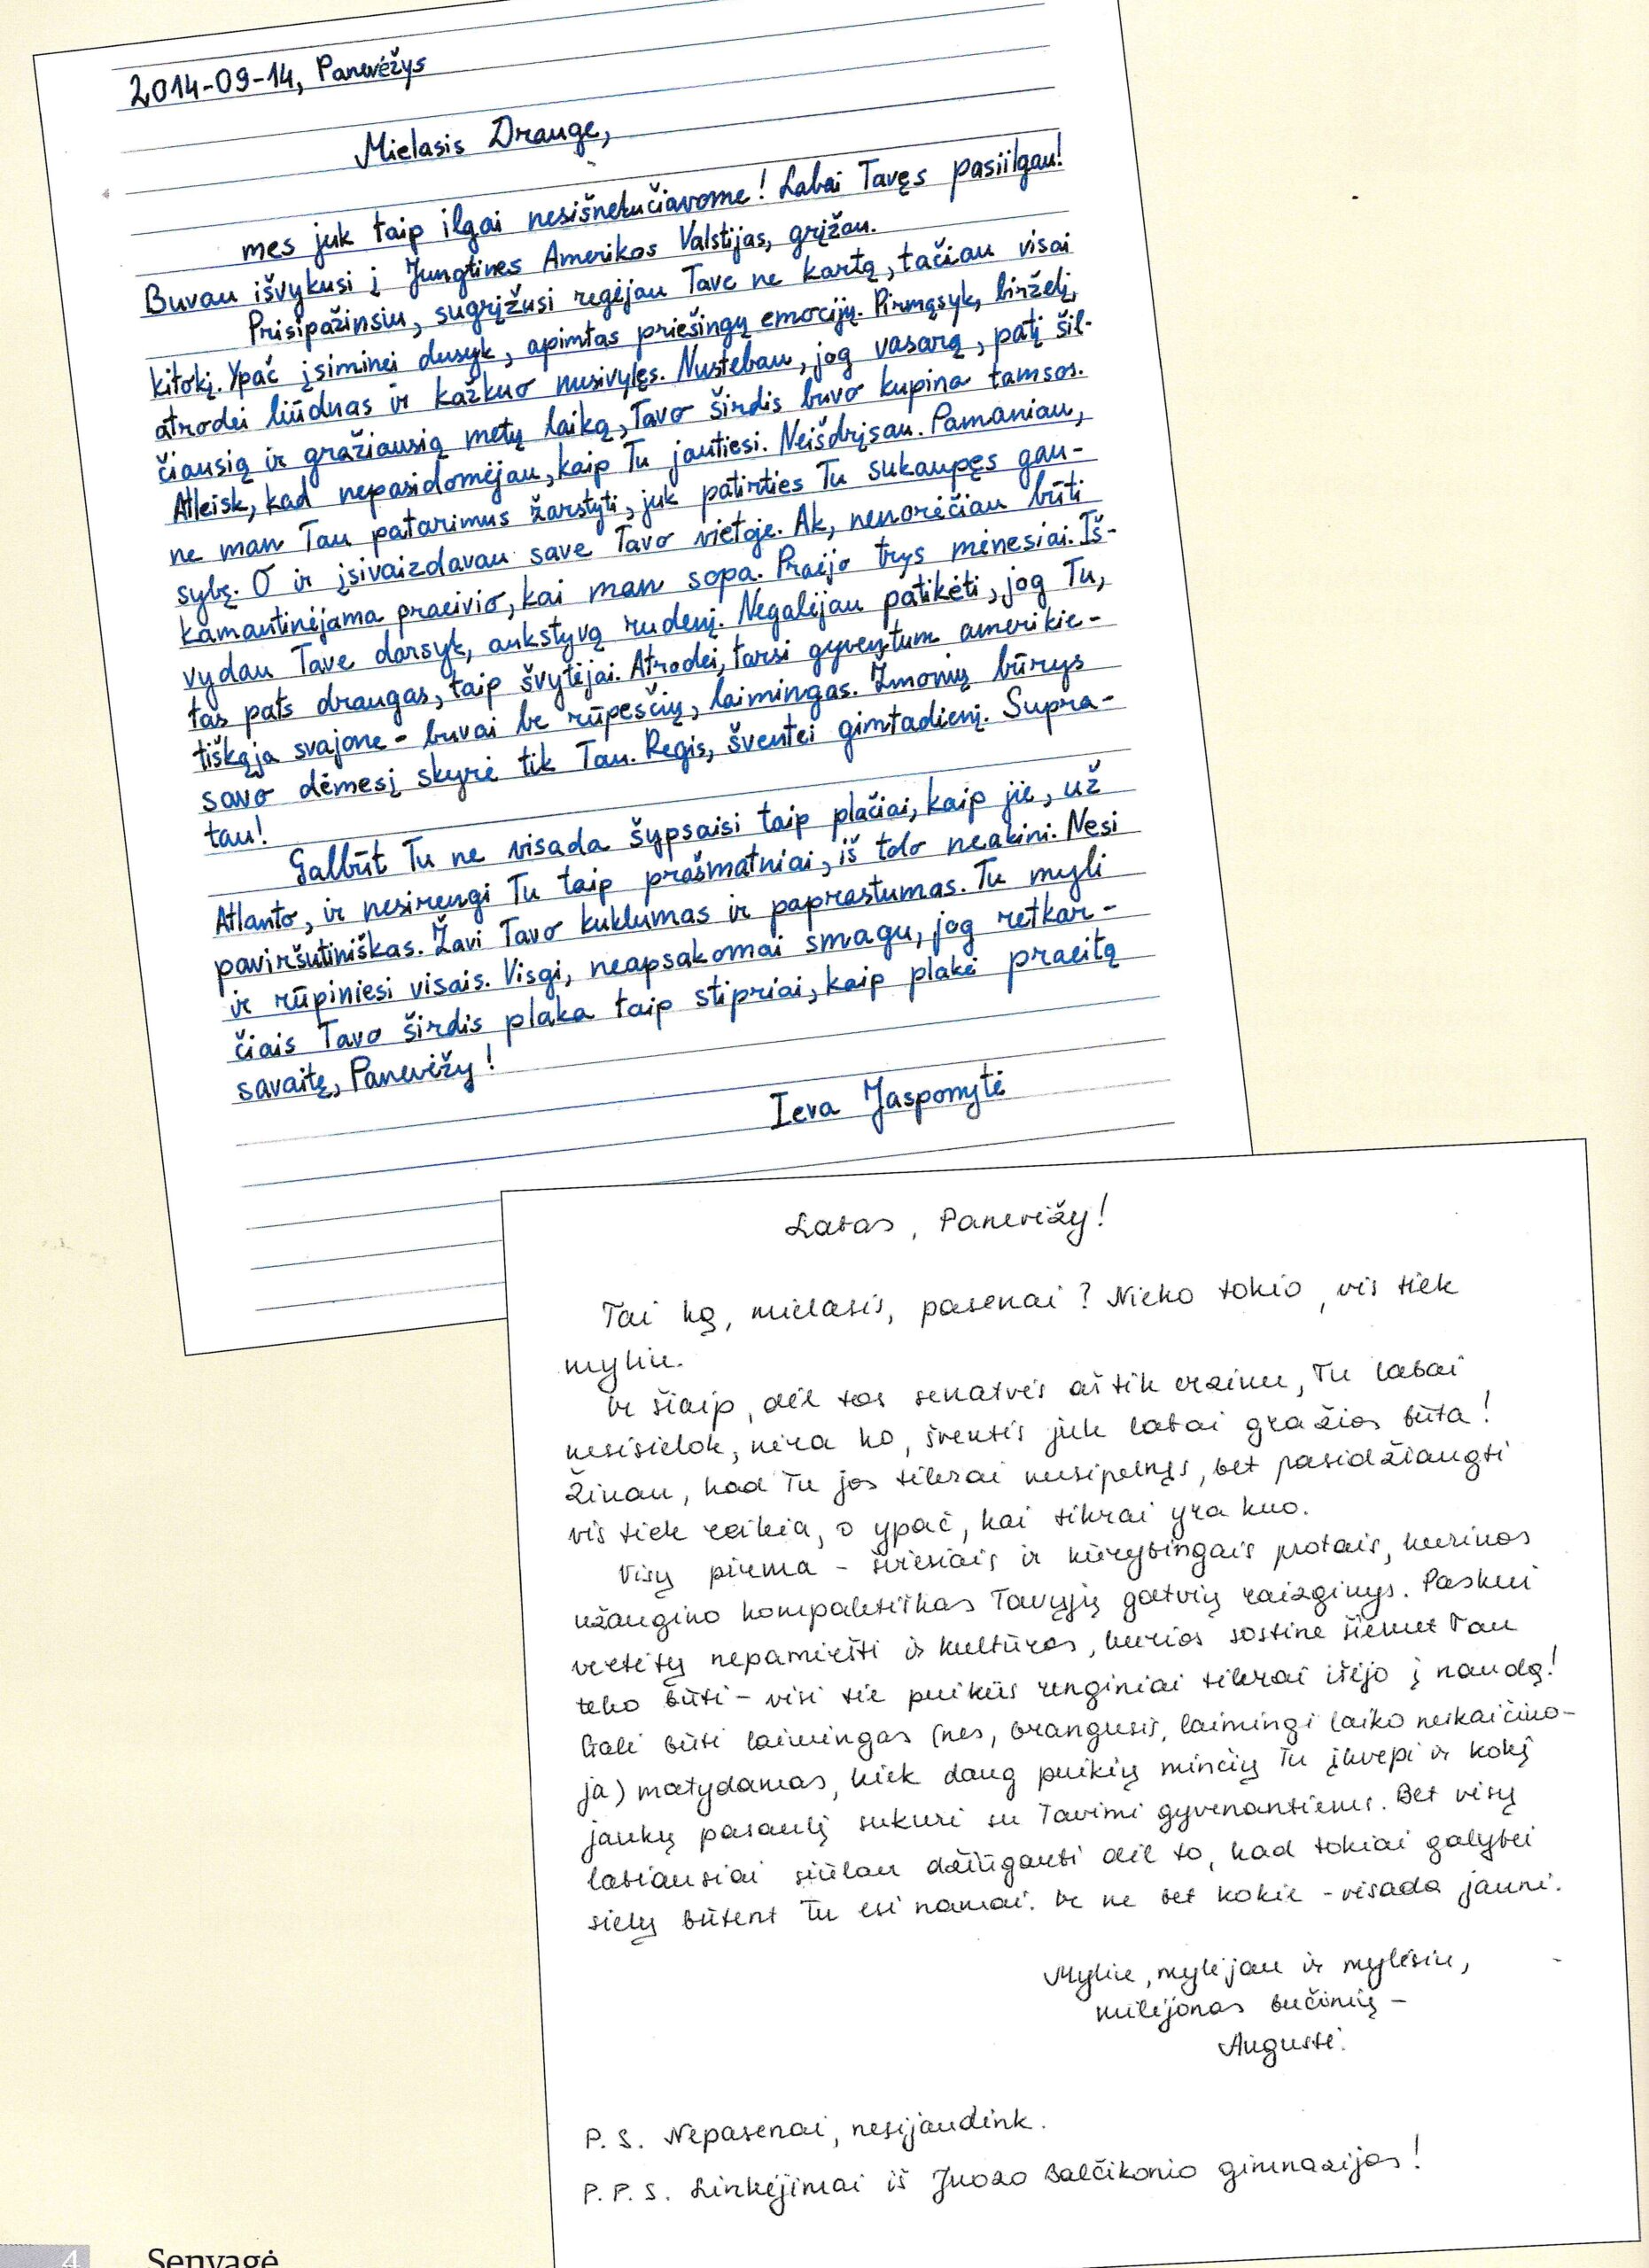 2014-09-14, Panevėžys
Mielasis Drauge,
mes juk taip ilgai nesišnekučiavome! Labai Tavęs pasiilgau!
Buvau išvykusi į Jungtines Amerikos Valstijas, grįžau.
Prisipažinsiu, sugrįžusi regėjau Tave ne kartą, tačiau visai
kitokį. Ypač įsiminei dusyk, apimtas priešingų emocijų. Pirmąsyk, birželį,
atrodei liūdnas ir kažkuo nusivylęs. Nustebau, jog vasarą, patį šil-
čiausią ir gražiausią metų laiką, Tavo širdis buvo kupina tamsos.
Atleisk, kad nepasidomėjau, kaip Tu jautiesi. Neišdrįsau. Pamaniau,
ne man Tau patarimus žarstyti, juk patirties Tu sukaupęs gau-
sybę. O ir įsivaizdavau save Tavo vietoje. Ak, nenorėčiau būti
kamantinėjama praeivio, kai man sopa. Praėjo trys mėnesiai. Iš-
vydau Tave darsyk, ankstyvą rudenį. Negalėjau patikėti, jog Tu,
tas pats draugas, taip švytėjai. Atrodei, tarsi gyventum amerikie-
tiškąja svajone - buvai be rūpesčių, laimingas. Žmonių būrys
savo dėmesį skyrė tik Tau. Regis, šventei gimtadienį. Supra-
tau!
Galbūt Tu ne visada šypsaisi taip plačiai, kaip jie, už
Atlanto, ir nesirengi Tu taip prašmatniai, iš tolo neakini. Nesi
paviršutiniškas. Žavi Tavo kuklumas ir paprastumas. Tu myli
ir rūpiniesi visais. Visgi, neapsakomai smagu, jog retkar-
čiais Tavo širdis plaka taip stipriai, kaip plakė praeitą
savaitę, Panevėžy!
Ieva Jasponytė
Labas, Panevėžy!
Tai ką, mielasis, pasenai? Nieko tokio, vis tiek
myliu.
Ir šiaip, dėl tos senatvės aš tik erzinu, Tu labai
nesisielok, nėra ko, šventės juk labai gražios būta!
Žinau, kad Tu jos tikrai nusipelnęs, bet pasidžiaugti
vis tiek reikia, o ypač, kai tikrai yra kuo.
Visų pirma - šviesiais ir kūrybingais protais, kuriuos
užaugino kompaktiškas Tavųjų gatvių raizginys. Paskui
vertėtų nepamiršti ir kultūros, kurios sostine šiemet Tau
teko būti - visi tie puikūs renginiai tikrai išėjo į naudą!
Gali būti laimingas (nes, brangusis, laimingi laiko neskaičiuo-
ja) matydamas, kiek daug puikių minčių Tu įkvepi ir kokį
jaukų pasaulį sukuri su Tavimi gyvenantiems. Bet visų
labiausiai siūlau džiūgauti dėl to, kad tokiai galybei
sielų būtent Tu esi namai. Ir ne bet kokie - visada jauni.
Myliu, mylėjau ir mylėsiu,
milijonas bučinių -
Augustė.
P. S. Nepasenai, nesijaudink.
P. P. S. Linkėjimai iš Juozo Balčikonio gimnazijos!
4 Senvagė